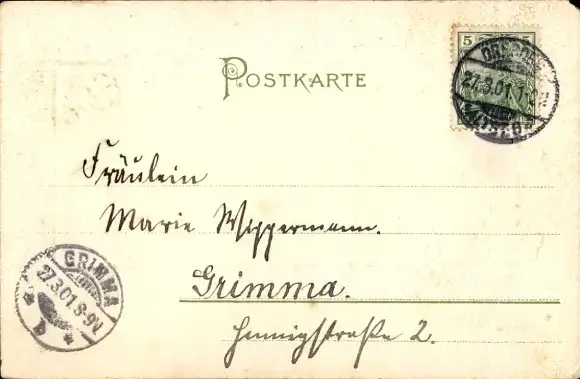 POSTKARTE
5 5
DRESDEN
27.3.01.
Fräulein
Marie Wippermann.
Grimma.
Hennigstraße 2.
GRIMMA
27.3.01.8-9V.
* b *